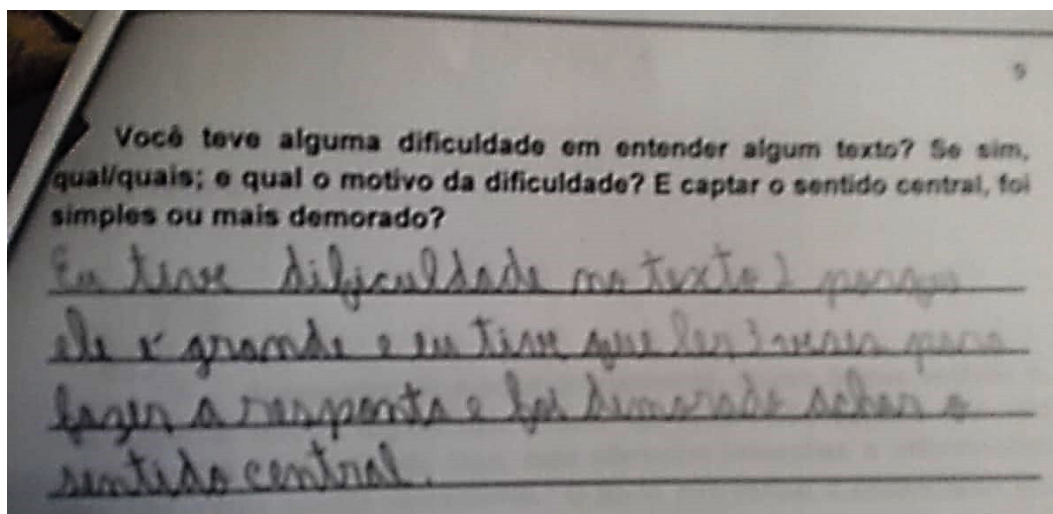 9
Você teve alguma dificuldade em entender algum texto? Se sim,
qual/quais; e qual o motivo da dificuldade? E captar o sentido central, foi
simples ou mais demorado?
Eu tive dificuldade no texto porque
ele é grande e eu tive que ler 3 vezes para
fazer a resposta e foi demorado achar o
sentido central.